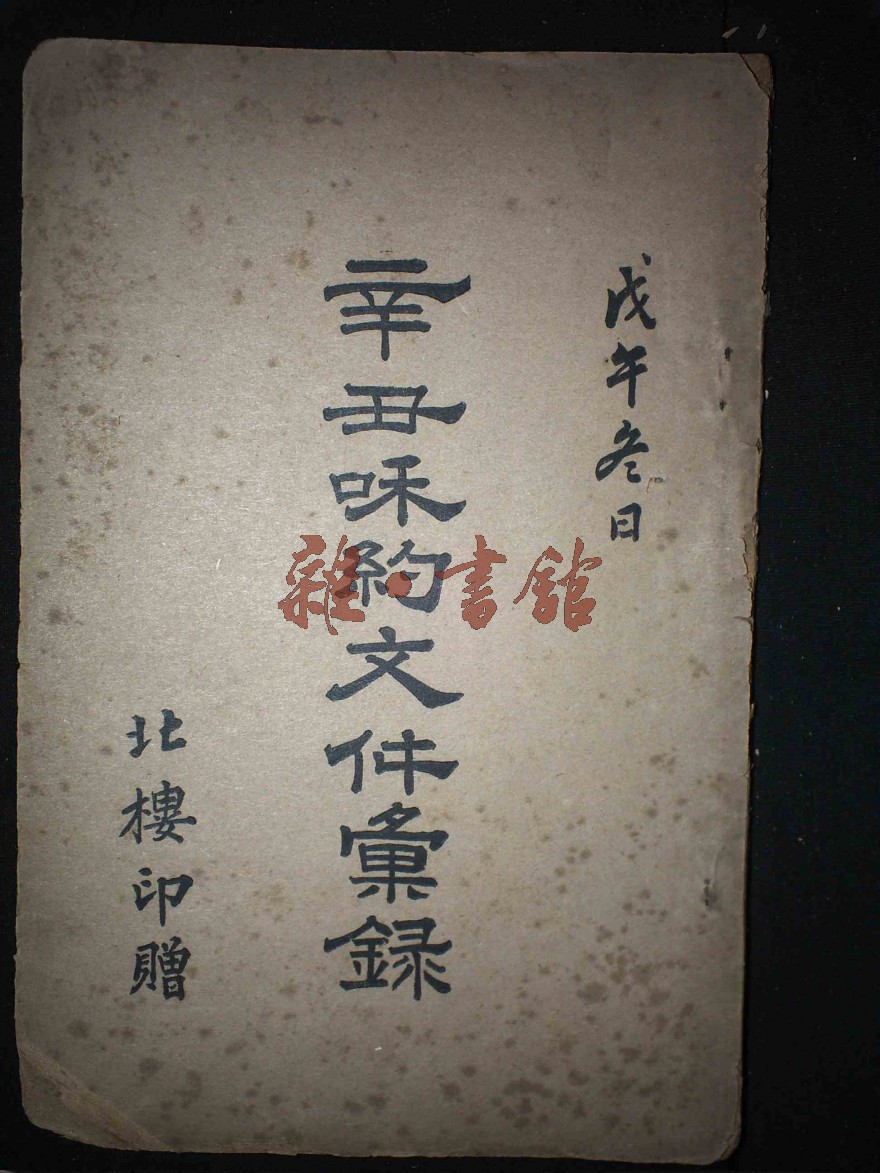 戊午冬日
辛丑咊約文件彙録
北樓印贈
雜·書館